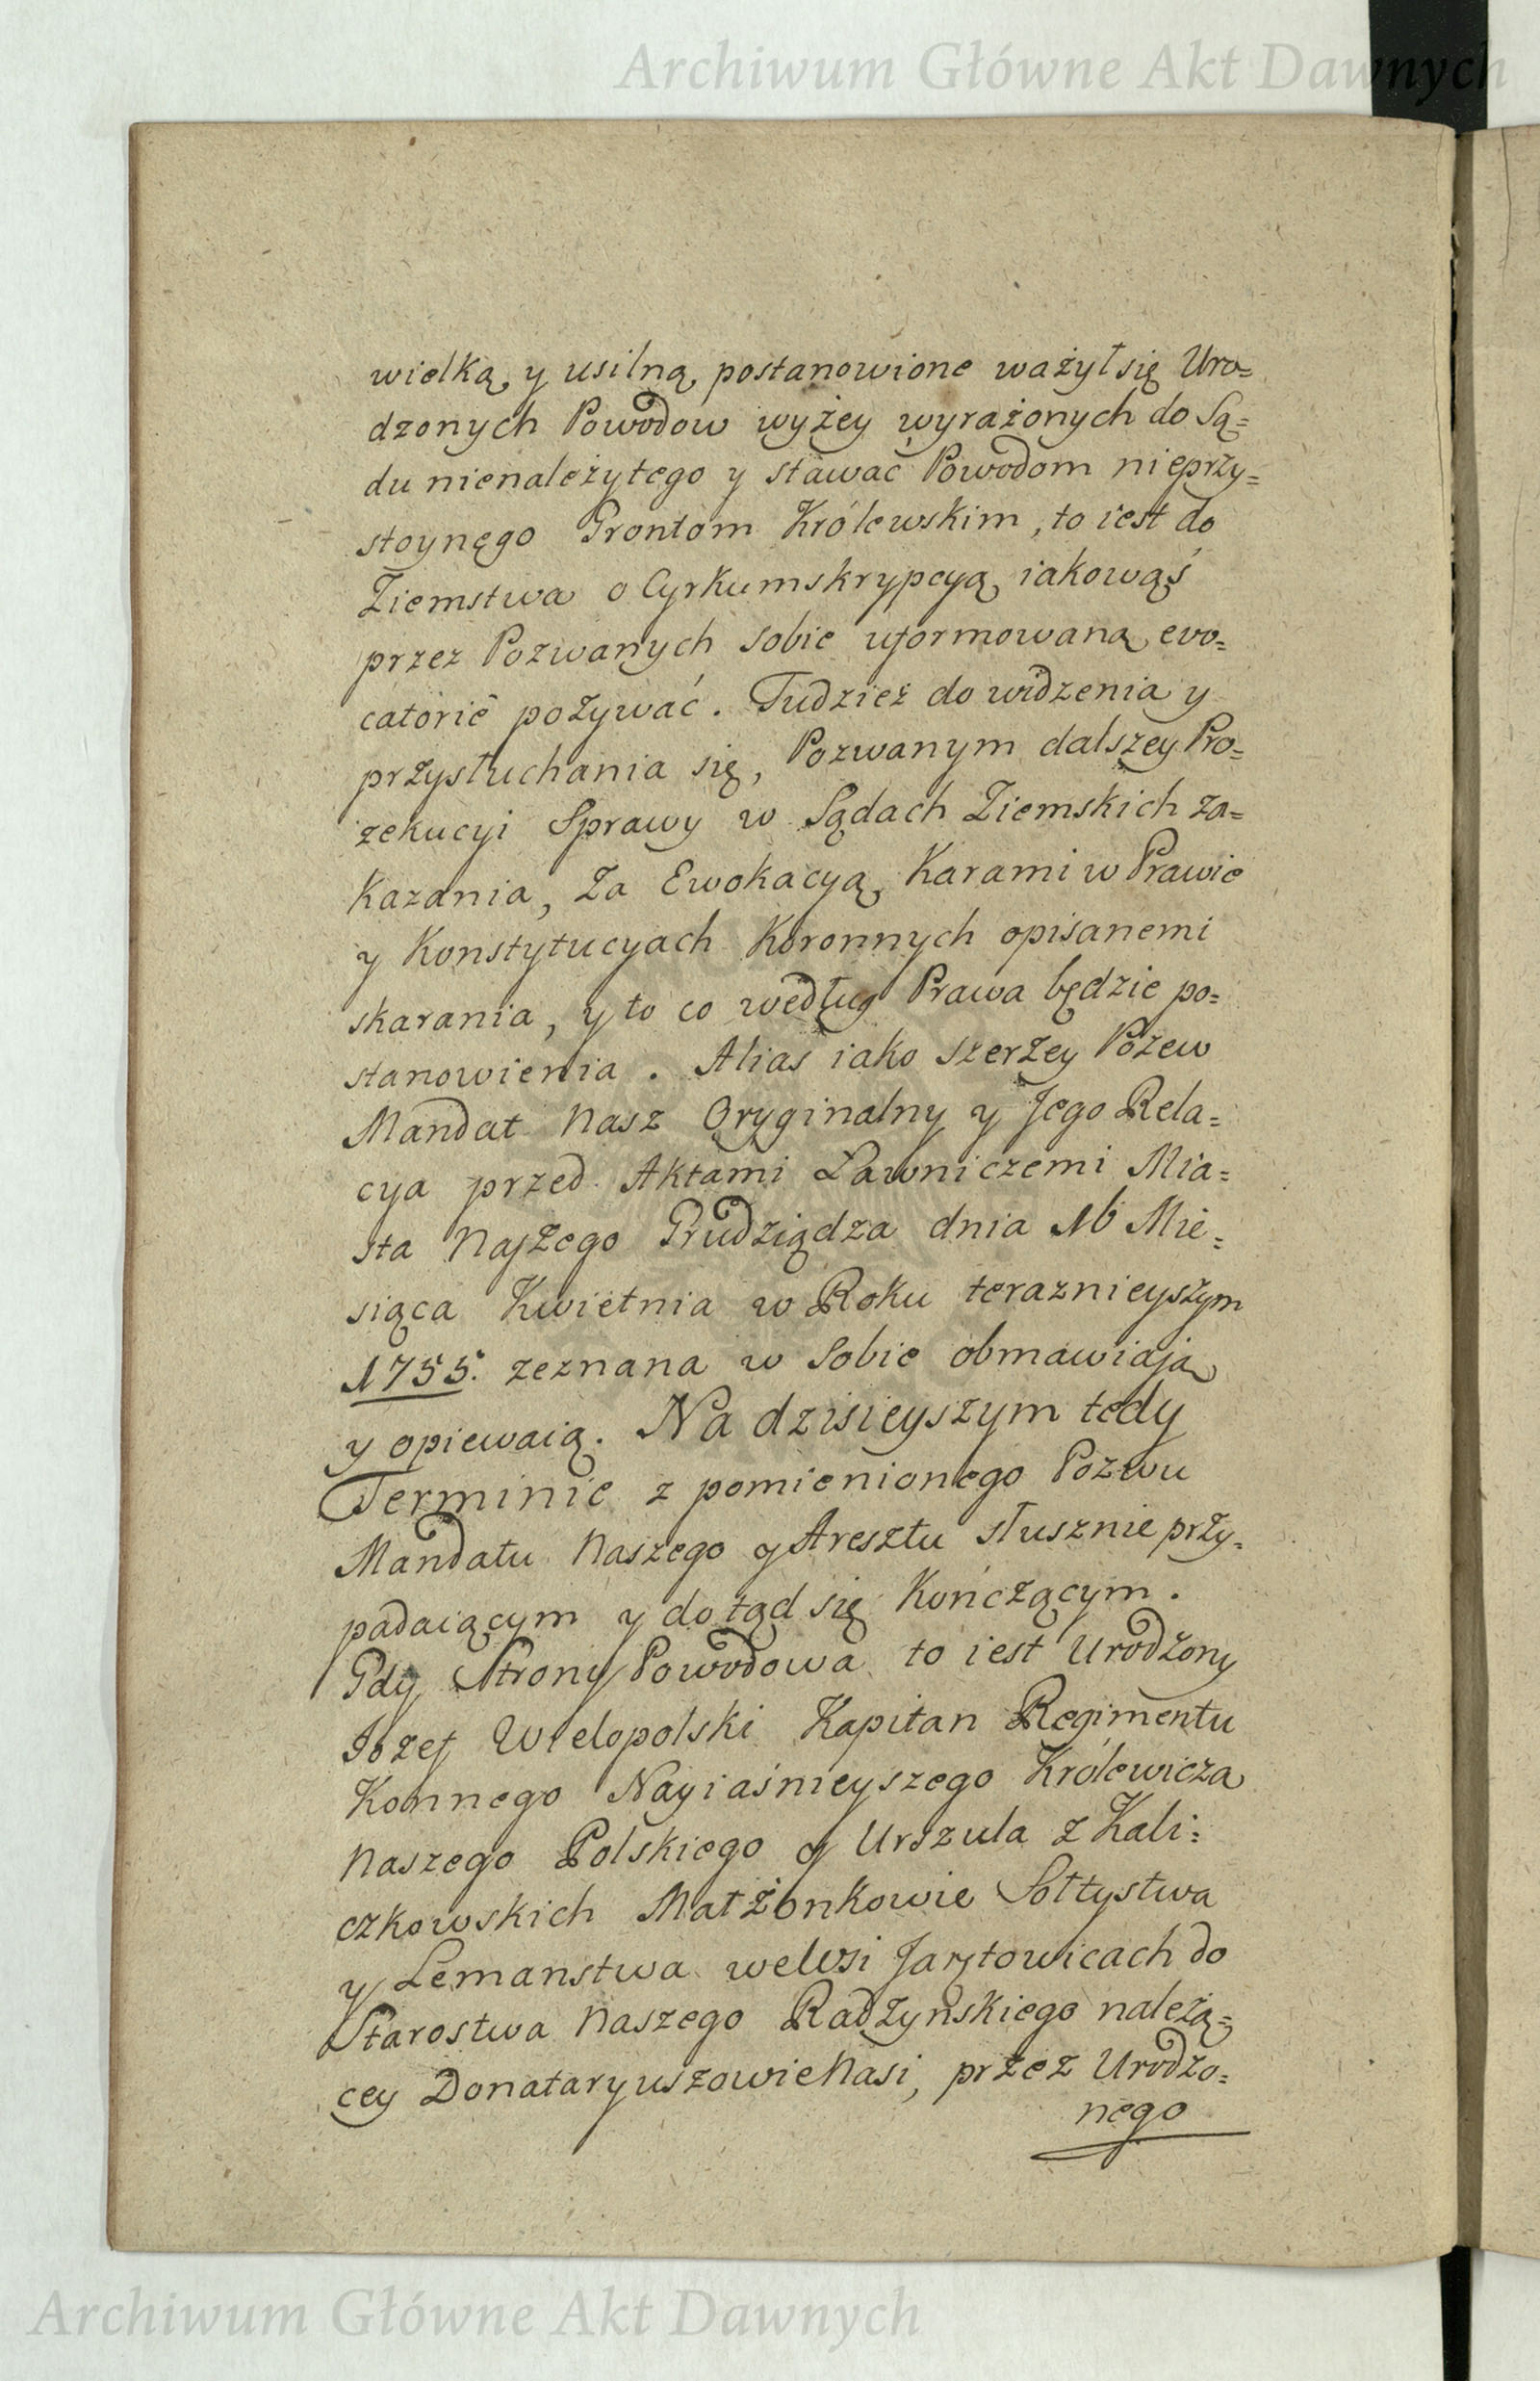 Archiwum Główne Akt Dawnych
wielką y usilną postanowione ważył się Uro=
dzonych Powodow wyżey wyrażonych do Są=
du nienależytego y stawać Powodom nieprzy=
stoynęgo Grontom Królewskim, to iest do
Ziemstwa o Cyrkumskrypcyą iakowąś
przez Pozwanych sobie uformowaną evo=
catorié pozywać. Tudzież do widzenia y
przysłuchania się, Pozwanym dalszey Pro=
zekucyi Sprawy w Sądach Ziemskich za=
kazania, za Ewokacyą Karami w Prawie
y Konstytucyach Koronnych opisanemi
skarania, y to co według Prawa będzie po=
stanowienia. Alias iako szerzey Pozew
Mandat Nasz Oryginalny y Jego Rela=
cya przed Aktami Ławniczemi Mia=
sta Naszego Grudziądza dnia 16 Mie=
siąca Kwietnia w Roku teraznieyszym
1755. zeznana w Sobie obmawiają
y opiewaią. Na dzisieyszym tedy
Terminie z pomienionego Pozwu
Mandatu Naszego y Aresztu słusznie przy=
padaiącym y do tąd się Kończącym.
Gdy Strony Powodowa to iest Urodzony
Jozef Wielopolski Kapitan Regimentu
Konnego Nayiaśnieyszego Królewicza
Naszego Polskiego y Urszula z Kali=
czkowskich Małżonkowie Sołtystwa
y Lemanstwa we Wsi Jarztowicach do
Starostwa Naszego Radzynskiego należą=
cey Donataryuszowie Nasi, przez Urodzo=
nego
Archiwum Główne Akt Dawnych